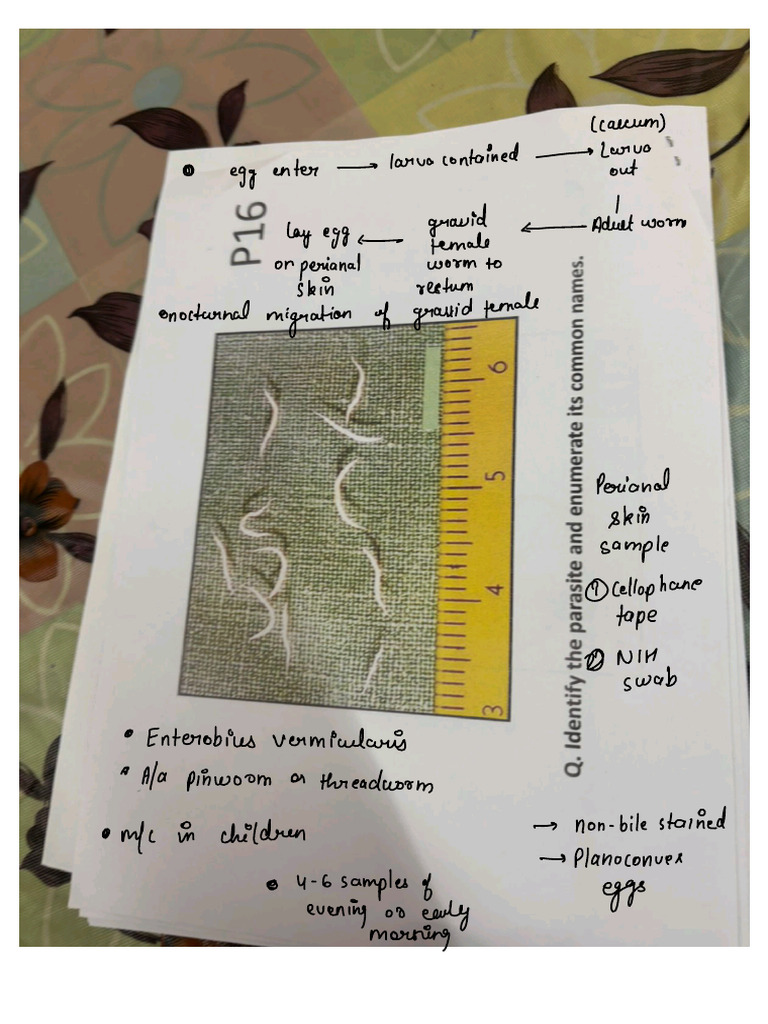 egg enter → larva contained → (caecum) Larva out
Adult worm
gravid female worm to rectum
lay egg on perianal skin
nocturnal migration of gravid female
P16
Q. Identify the parasite and enumerate its common names.
6
5
4
3
Perianal
skin
sample
① Cellophane
tape
② NIH
swab
• Enterobius vermicularis
• A/a pinworm or threadworm
• m/c in children
→ non-bile stained
→ Planoconvex
eggs
• 4-6 samples of
evening or early
morning